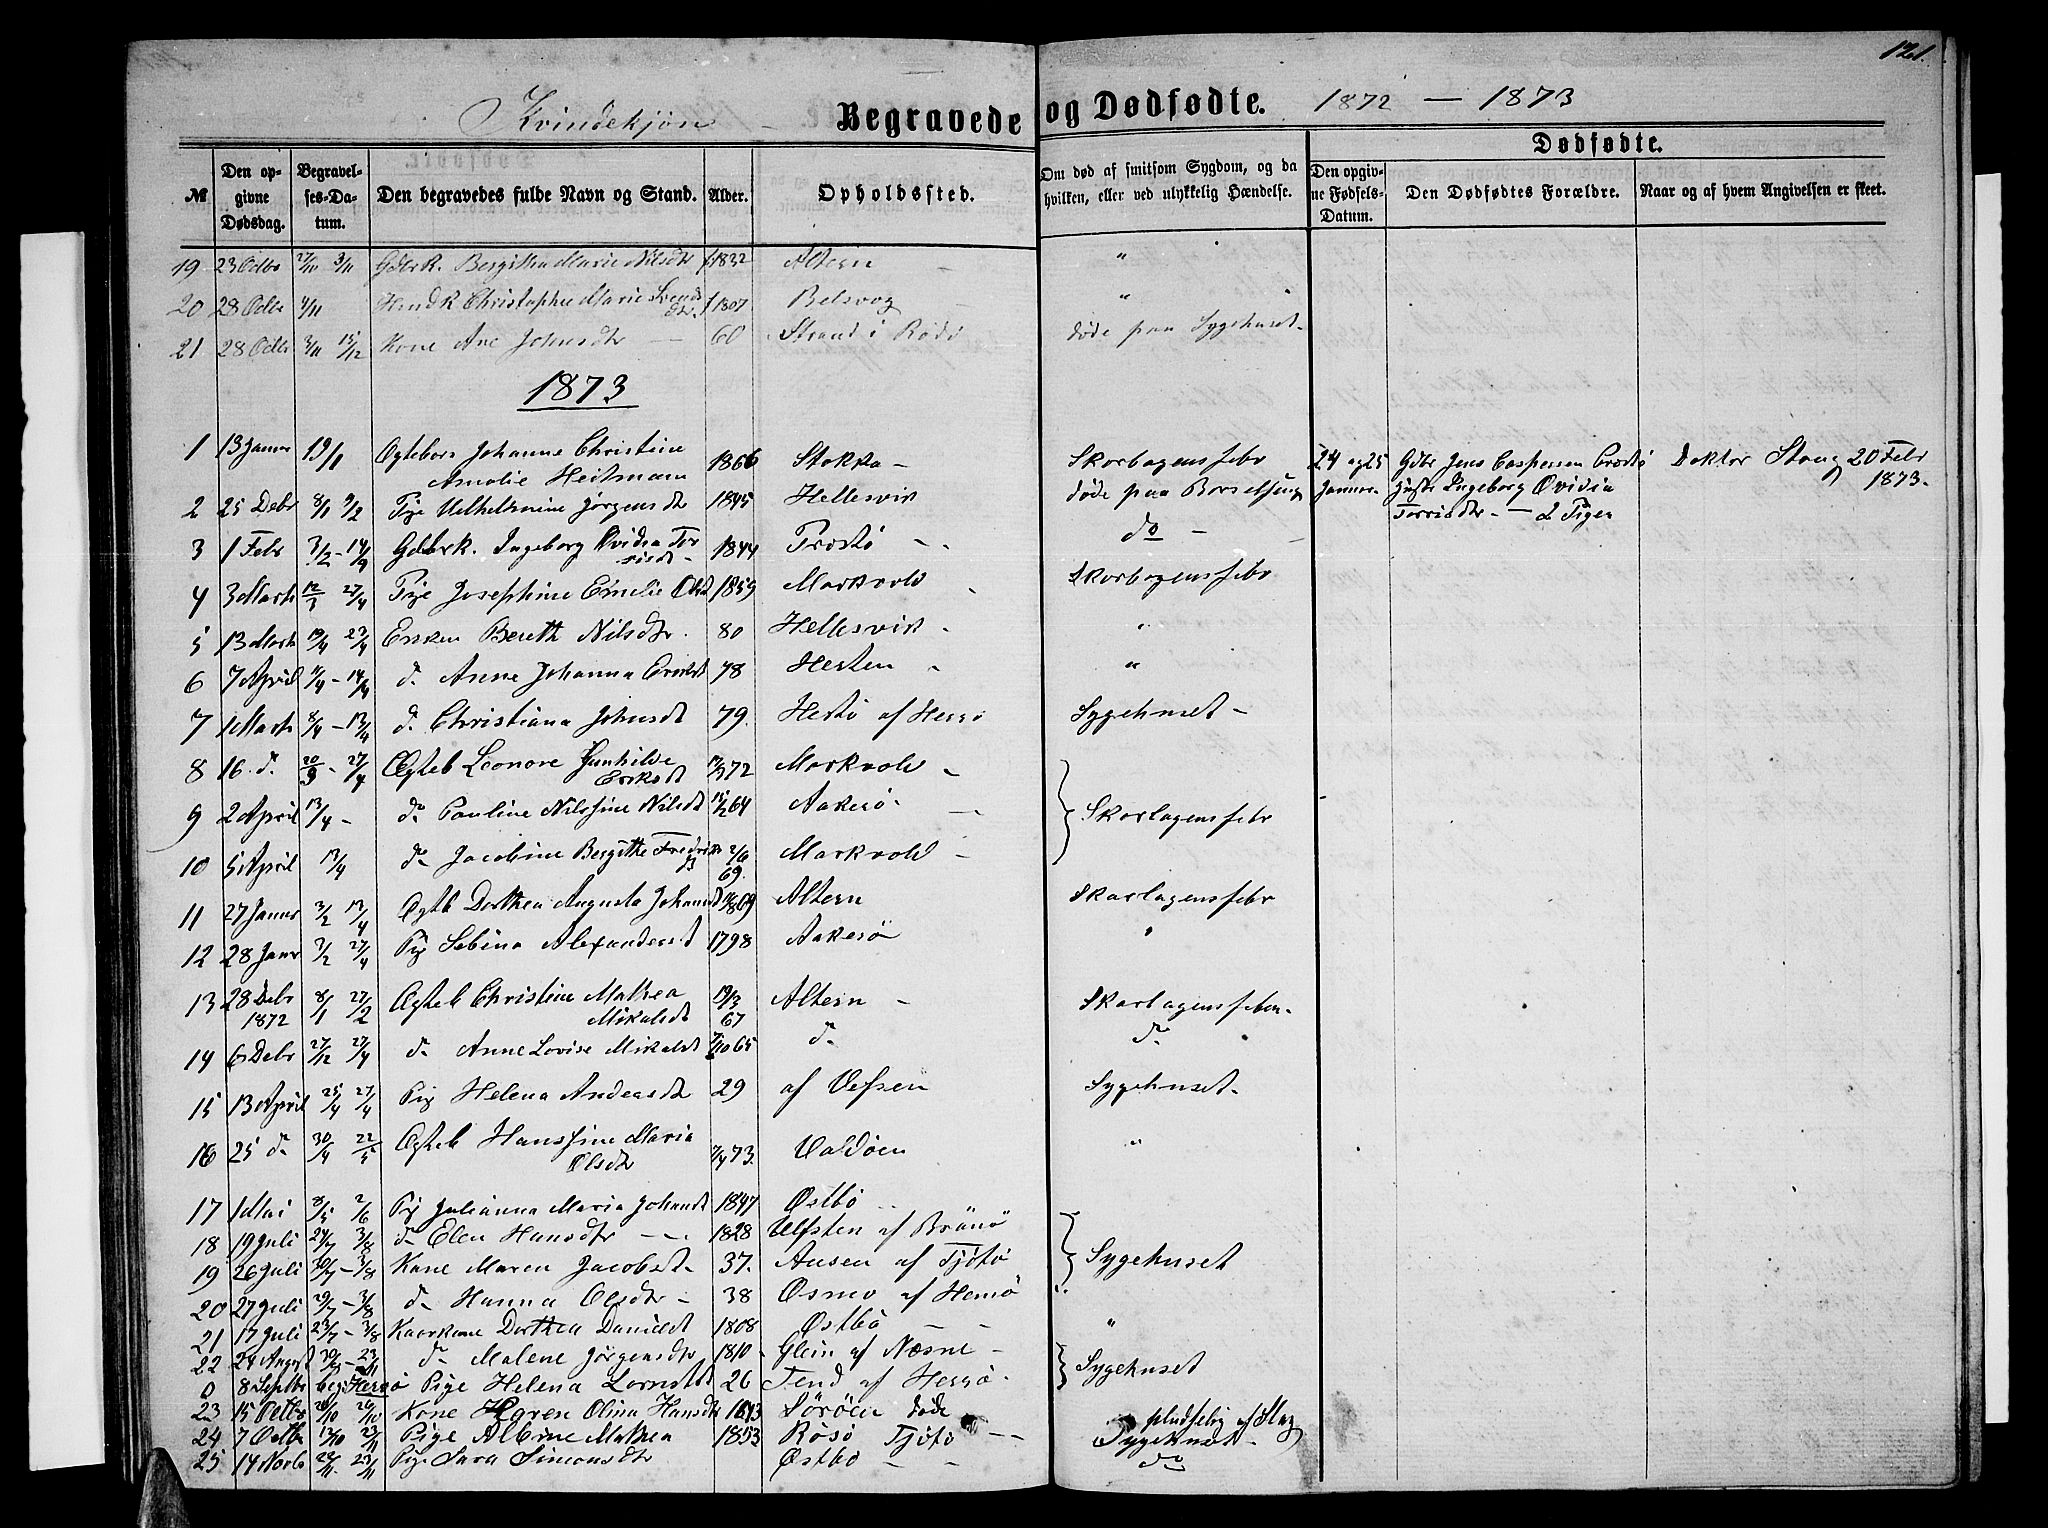 121.
Kvindekjøn Begravede og Dødfødte. 1872 — 1873
Dødfødte.
№ Den opgivne Dødsdag. Begravelses-Datum. Den begravedes fulde Navn og Stand. Alder. Opholdssted. Om død af smitsom Sygdom, og da hvilken, eller ved ulykkelig Hændelse. Den opgivne Fødsels-Datum. Den Dødfødtes Forældre. Naar og af hvem Angivelsen er skeet.
19 23 Octbr 27/10 3/11 Gdbrk. Bergitha Marie Nilsdtr f 1832 Altern "
20 28 Octbr 4/11 Christophe Marie Svendsdtr. f 1807 Belsvog "
21 28 Octbr 3/11 15/12 Kone Ane Johnsdtr — 60 Strand i Rødø døde paa Sygehuset.
1873
1 13 Januar 19/1 Ægtebarn Johanne Christine Amalie Heitmann 1866 Stokka — Skarlagensfeber
24 og 25 Januar. Gdbr Jens Caspersen Hustr Ingeborg Ovidia Torrisdtr. — 2 Piger Doktor Stang 20 Febr 1873.
2 25 Debr 8/1 9/2 Pige Vilhelmine Jørgensdt 1845 Hellesvik døde paa Barselseng
3 1 Febr 3/2 – 14/4 Gdbrk. Ingeborg Ovidia Torrisdt 1844 Prostø — do —
4 3 Marts 12/3 27/4 Pige Josephine Emelie Olsd 1859 Markvold Skarlagensfebr
5 13 Marts 19/4 23/4 Enken Bereth Nilsdtr. 80 Hellesvik "
6 7 April 11/4 – 14/4 d. Anne Johanna 78 Hesten "
7 1 Marts 8/4 – 13/4 d. Christiana Johnsdt 79. Hestø af Herrø Sygehuset —
8 16 d. 20/3 – 27/4 Ægteb Leonore Gunhilde Eriksdt 72 Markvold — Skarlagensfebr
9 2 April 13/4 – do Pauline Nilsine Nilsdt 64 Aakerø —
10 5 April 13/4 do Jacobine Bergithe Fredriksdt 2/6 69. Markvold —
11 27 Januar 3/2 13/4 Ægteb Dorthea Augusta Johansdt Altern Skarlagensfebr
12 28 Janr 3/2 27/4 Pig Sebina Alexandersdt 1798 Aakerø "
13 28 Debr 1872 8/1 27/2 Ægteb Christine Mathea Mikalsdt 19/3 67 Altern — Skarlagensfeber.
14 6 Debr 27/12 27/4 d. Anne Lovise Mikalsdt 65 d. d.
15 13 April 25/4 27/4 Pig Helena Andersdt 29 af Vefsen Sygehuset.
16 25 d. 30/4 22/5 Ægteb Hansine Maria Olsdtr 7/4 73. Valdøen "
17 1 Mai 3/5 2/6 Pig Julianna Maria Johansdt 1847 Østbø
18 19 Juli 24/7 3/8 do Elen Hansdtr — 1828 Ulfsten af Brønø
19 26 Juli 30/7 – 3/8 Kone Maren Jacobsdt. 37. Ausen af Tjøtø Sygehuset
20 27 Juli 29/7 – 3/8 d. Hanna Olsdtr — 38 af Herrø
21 17 Juli 23/7 – 3/8 Kaarkone Dorthea Danieldt 1808 Østbø — "
22 24 August 30/8 – 23/11 d. Malene Jørgensdtr 1810 Glein af Næsne — Sygehuset
0 8 Septbr begr. Herrø Pige Helena 26 Tend af Herrø.
23 15 Octbr 20/10 26/10 Kone Karen Olina Hansdtr Sørøen døde pludselig af Slag
24 7 Octbr 12/10 23/11 Pige Albine Mathea 1853 Røsø Tjøtø — Sygehuset.
25 14 Novbr 22/11 23/11 Pige Sara Simonsdtr Østbø — do